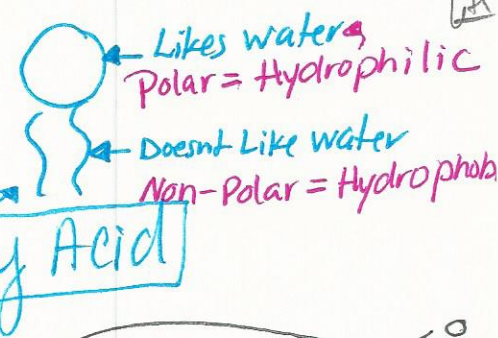 Likes water
Polar = Hydrophilic
Doesnt Like water
Non-Polar = Hydrophob
y Acid